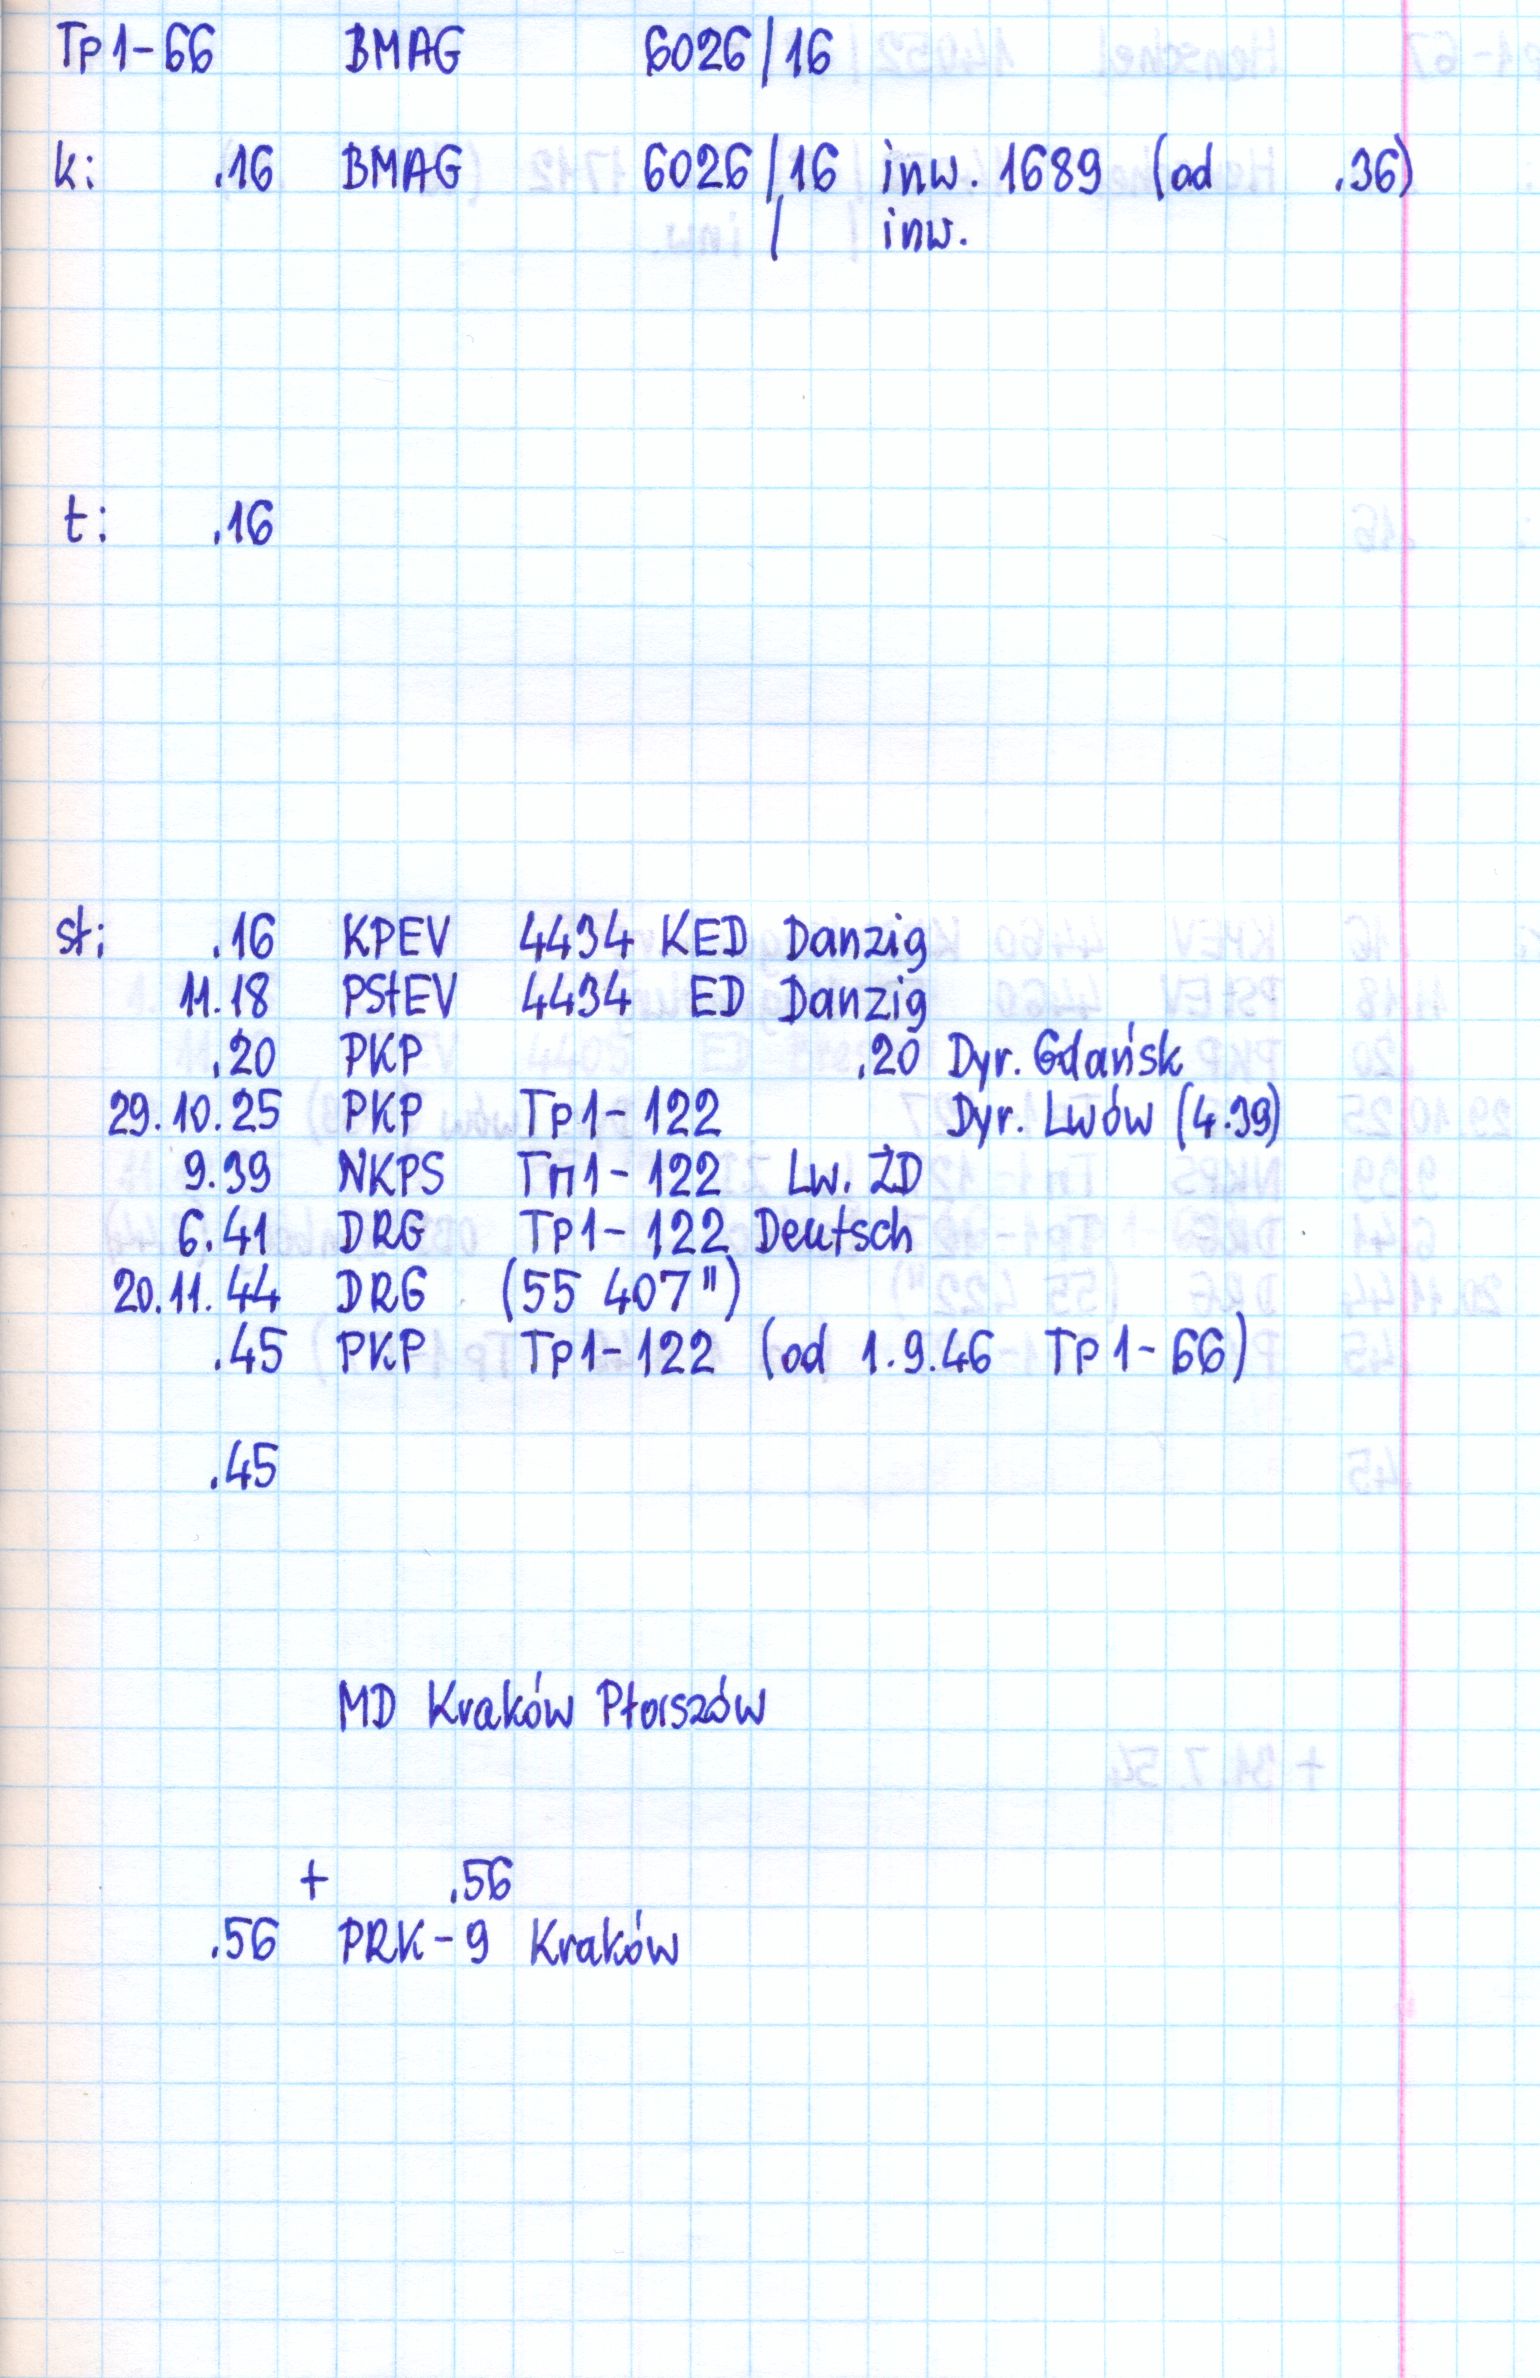 Tp1-66 BMAG 6026/16
k: .16 BMAG 6026/16 inw. 1689 (od .36)
/ inw.
t: .16
st: .16 KPEV 4434 KED Danzig
11.18 PStEV 4434 ED Danzig
.20 PKP .20 Dyr. Gdańsk
29.10.25 PKP Tp1-122 Dyr. Lwów (4.39)
9.39 NKPS Tп1-122 Lw. ŻD
6.41 DRG Tp1-122 Deutsch
20.11.44 DRG (55 407")
.45 PKP Tp1-122 (od 1.9.46 Tp1-66)
.45
MD Kraków Płaszów
+ .56
.56 PRK-9 Kraków